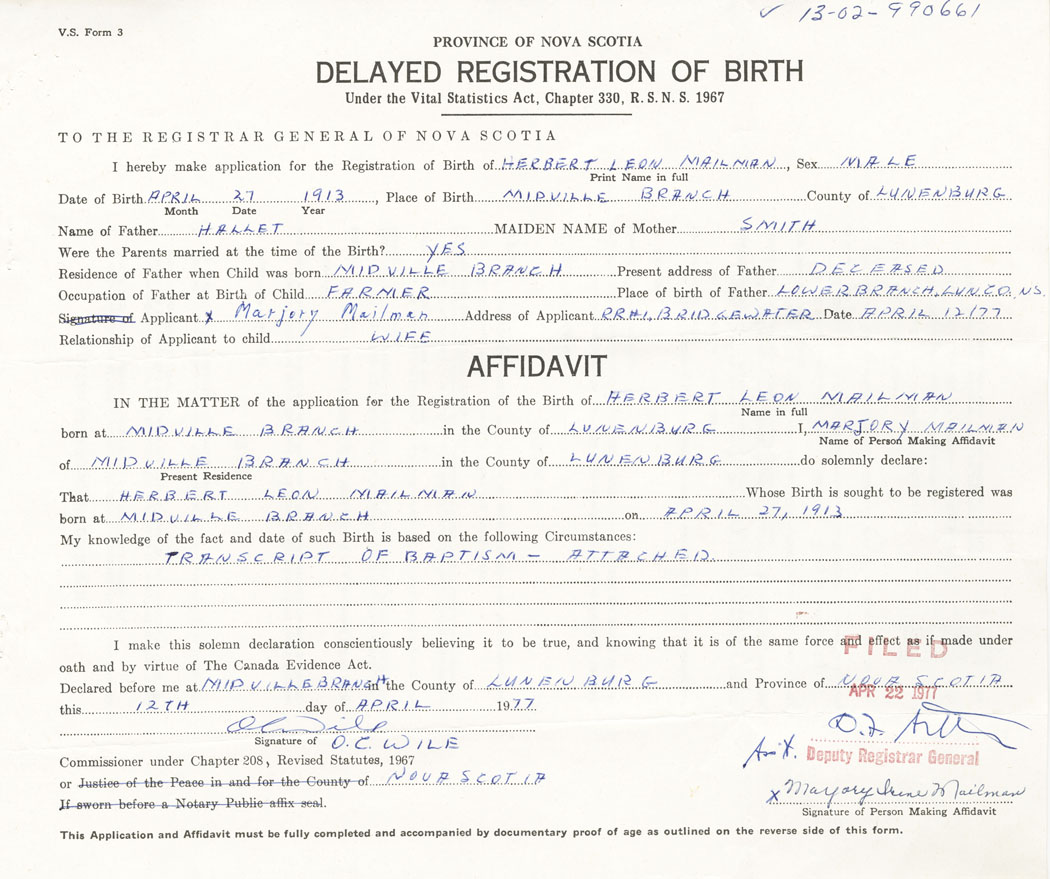 ✓ 13-02-990661
V.S. Form 3
PROVINCE OF NOVA SCOTIA
DELAYED REGISTRATION OF BIRTH
Under the Vital Statistics Act, Chapter 330, R. S. N. S. 1967
TO THE REGISTRAR GENERAL OF NOVA SCOTIA
I hereby make application for the Registration of Birth of HERBERT LEON MAILMAN, Sex MALE
Print Name in full
Date of Birth APRIL 27 1913, Place of Birth MIDVILLE BRANCH County of LUNENBURG
Month Date Year
Name of Father HALLET MAIDEN NAME of Mother SMITH
Were the Parents married at the time of the Birth? YES
Residence of Father when Child was born MIDVILLE BRANCH Present address of Father DECEASED
Occupation of Father at Birth of Child FARMER Place of birth of Father LOWER BRANCH, LUN.CO. NS.
Signature of Applicant x Marjory Mailman Address of Applicant RR#1, BRIDGEWATER Date APRIL 12/77
Relationship of Applicant to child WIFE
AFFIDAVIT
IN THE MATTER of the application for the Registration of the Birth of HERBERT LEON MAILMAN
Name in full
born at MIDVILLE BRANCH in the County of LUNENBURG I, MARJORY MAILMAN
Name of Person Making Affidavit
of MIDVILLE BRANCH in the County of LUNENBURG do solemnly declare:
Present Residence
That HERBERT LEON MAILMAN Whose Birth is sought to be registered was
born at MIDVILLE BRANCH on APRIL 27, 1913
My knowledge of the fact and date of such Birth is based on the following Circumstances:
TRANSCRIPT OF BAPTISM — ATTACHED.
I make this solemn declaration conscientiously believing it to be true, and knowing that it is of the same force and effect as if made under
FILED
oath and by virtue of The Canada Evidence Act.
Declared before me at MIDVILLE BRANCH in the County of LUNENBURG and Province of NOVA SCOTIA
APR 22 1977
this 12TH day of APRIL 1977
O C Wile
Signature of O.C. WILE
Commissioner under Chapter 208, Revised Statutes, 1967
Ass't. Deputy Registrar General
or Justice of the Peace in and for the County of NOVA SCOTIA
If sworn before a Notary Public affix seal.
x Marjory Irene Mailman
Signature of Person Making Affidavit
This Application and Affidavit must be fully completed and accompanied by documentary proof of age as outlined on the reverse side of this form.